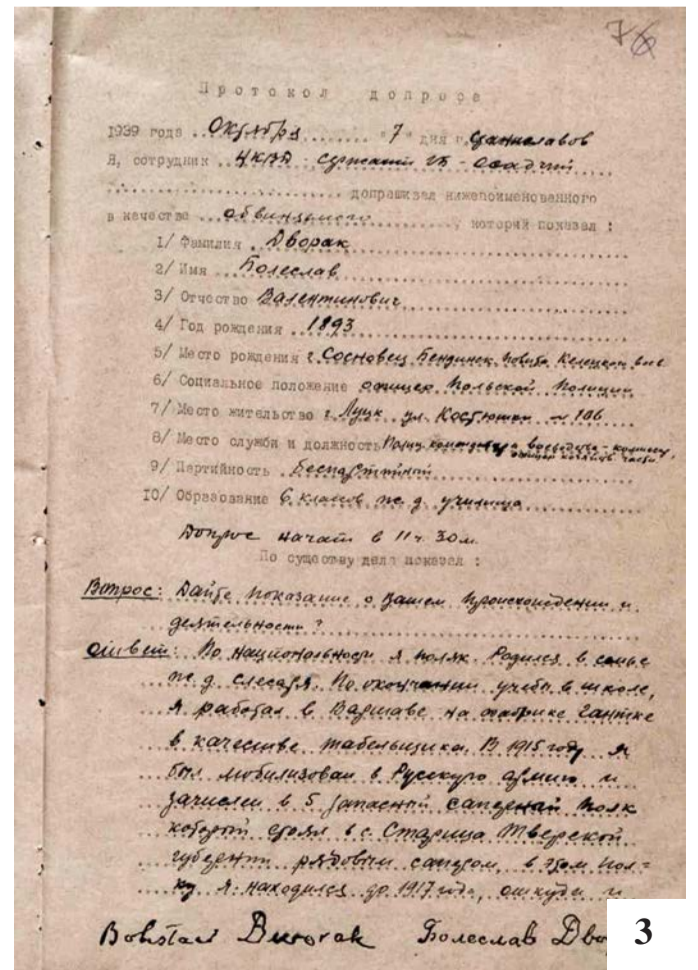 76
Протокол допроса
1939 года Октября "7" дня г. Станиславов
Я, сотрудник НКВД - сержант ГБ - Осадчий
допрашивал нижепоименованного
в качестве обвиняемого, который показал :
1/ Фамилия Дворак
2/ Имя Болеслав
3/ Отчество Валентинович
4/ Год рождения 1893
5/ Место рождения г. Сосновец Бендинск. повита Келецкого воев
6/ Социальное положение офицер Польской Полиции
7/ Место жительство г. Луцк ул. Костюшки № 106
8/ Место служби и должность воеводства - комисар,
офицер
9/ Партийность беспартийный
10/ Образование 6 классов ж. д. училища
Допрос начат в 11 ч. 30 м.
По существу дела показал :
Вопрос: Дайте показание о Вашем происхождении и
деятельности?
Ответ: По национальности я поляк. Родился в семье
ж. д. слесаря. По окончании учебы в школе,
я работал в Варшаве на фабрике Гантке
в качестве табельщика. В 1915 году я
был мобилизован в Русскую армию и
зачислен в 5 запасный саперный полк
который стоял в с. Старица Тверской
губернии рядовым сапером, в этом пол-
ку я находился до 1917 года, откуда и
Bolesław Dworak Болеслав Дво
3